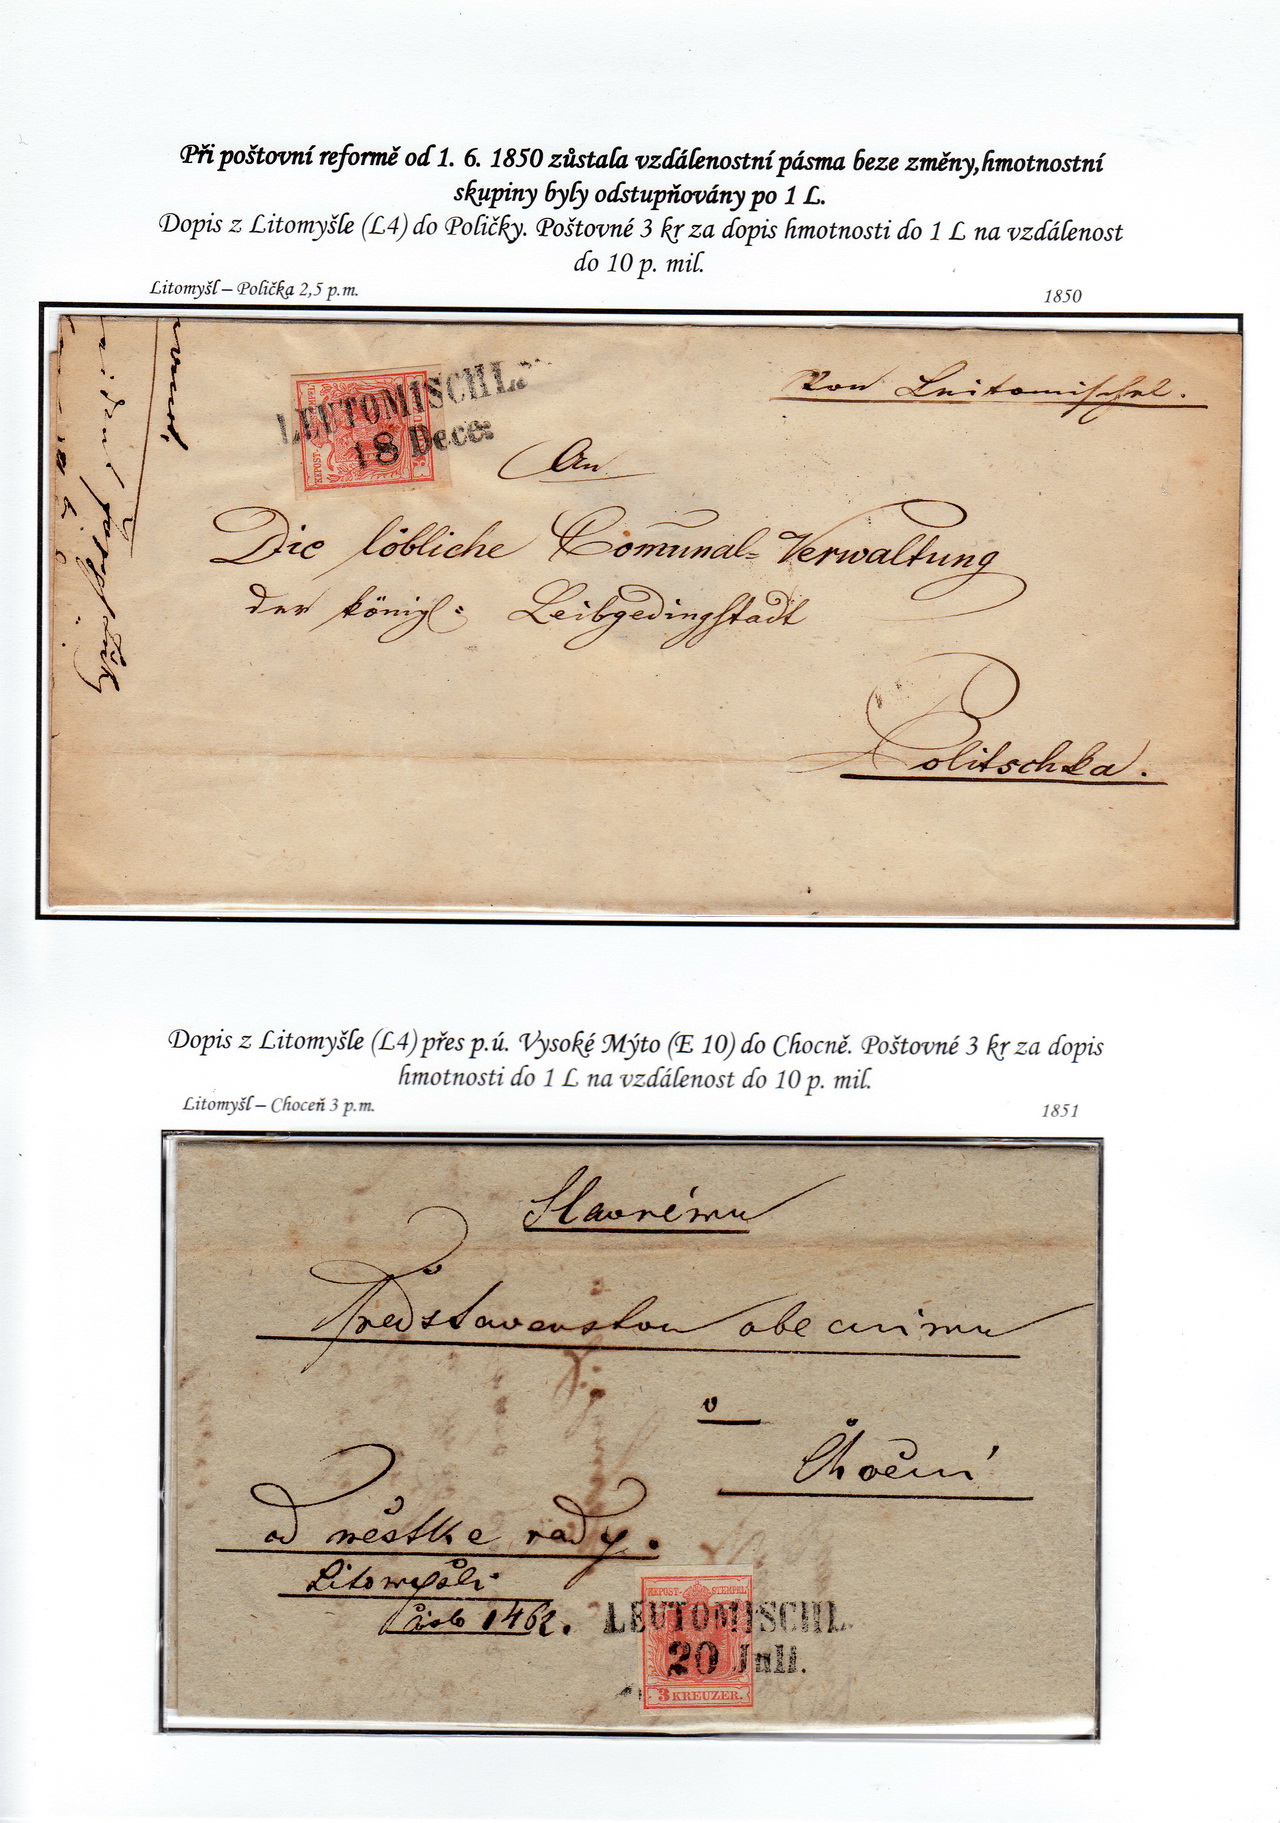 Při poštovní reformě od 1. 6. 1850 zůstala vzdálenostní pásma beze změny,hmotnostní
skupiny byly odstupňovány po 1 L.
Dopis z Litomyšle (L4) do Poličky. Poštovné 3 kr za dopis hmotnosti do 1 L na vzdálenost
do 10 p. mil.
Litomyšl – Polička 2,5 p.m.
1850
LEUTOMISCHL.
18 Dece:
Von Leitomischel.
An
Die löbliche Comunal=Verwaltung
der königl: Leibgedingstadt
Politschka.
Dopis z Litomyšle (L4) přes p.ú. Vysoké Mýto (E 10) do Chocně. Poštovné 3 kr za dopis
hmotnosti do 1 L na vzdálenost do 10 p. mil.
Litomyšl – Choceň 3 p.m.
1851
Slavnému
Předstawenstvu obecnimu
v
Chocni
od městke rady.
Litomyšli
číslo 1462.
KKPOST-STEMPEL
LEUTOMISCHL.
20 Juli.
3 KREUZER.